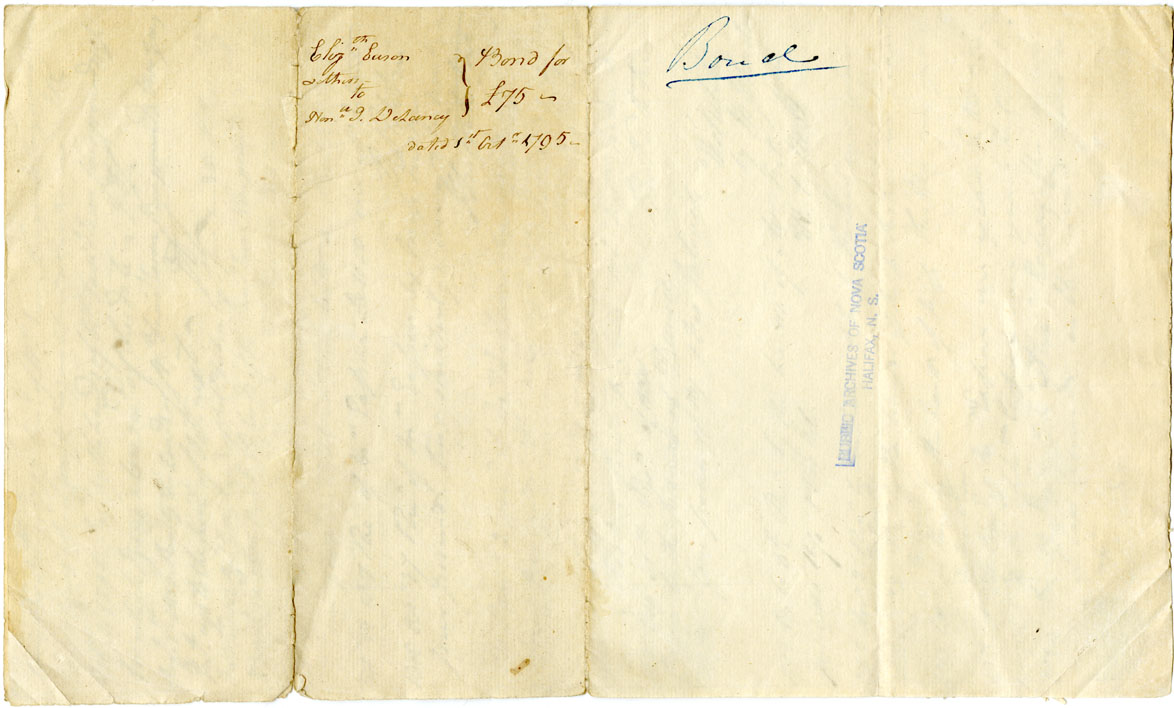 Eliz.th Eason
others
to
Hon.ble J. DeLancy
Bond for
£75
dated 1st Oct.r 1795
Bond
PUBLIC ARCHIVES OF NOVA SCOTIA
HALIFAX, N. S.